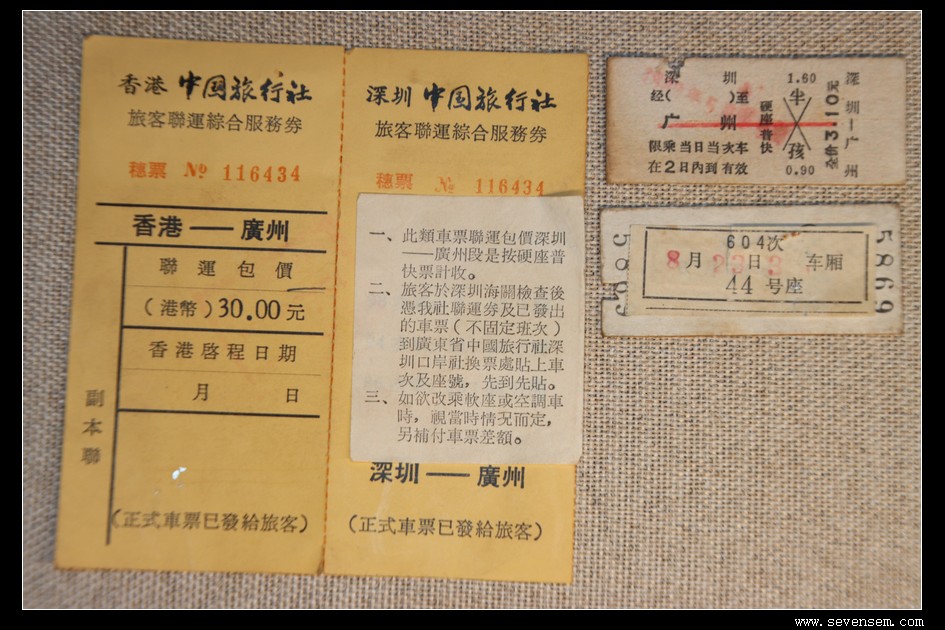 香港 中国旅行社
旅客聯運綜合服務券
穗票 № 116434
香港——廣州
聯運包價
(港幣)30.00元
香港啓程日期
月 日
副本聯
(正式車票已發給旅客)
深圳 中国旅行社
旅客聯運綜合服務券
穗票 № 116434
一、此類車票聯運包價深圳
——廣州段是按硬座普
快票計收。
二、旅客於深圳海關檢查後
憑我社聯運券及已發出
的車票(不固定班次)
到廣東省中國旅行社深
圳口岸社換票處貼上車
次及座號,先到先貼。
三、如欲改乘軟座或空調車
時,視當時情況而定,
另補付車票差額。
深圳——廣州
(正式車票已發給旅客)
深 圳
经( )至
广 州
硬座普快
限乘当日当次车
在2日内到有效
1.60
半
孩
0.90
全价3.10元
深圳—广州
604次
8月23日 车厢
44号座
5869
5869
www.sevensem.com